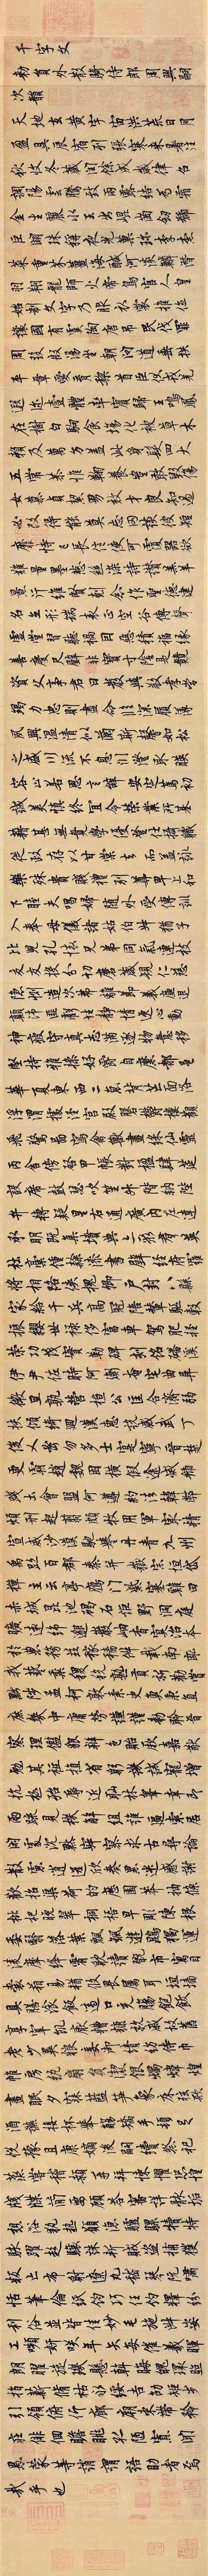 千字文
勅員外散騎侍郎周興嗣
次韻
天地玄黃宇宙洪荒日月
盈昃辰宿列張寒來暑往
秋收冬藏閏餘成歲律召
調陽雲騰致雨露結為霜
金生麗水玉出崑岡劍號
巨闕珠稱夜光菓珎李柰
菜重芥薑海醎河淡鱗潛
羽翔龍師火帝鳥官人皇
始制文字乃服衣裳推位
讓國有虞陶唐弔民伐罪
周發殷湯坐朝問道垂拱
平章愛育黎首臣伏戎羌
遐邇壹體率賓歸王鳴鳳
在樹白駒食場化被草木
賴及萬方蓋此身髮四大
五常恭惟鞠養豈敢毀傷
女慕貞絜男效才良知過
必改得能莫忘罔談彼短
靡恃己長信使可覆器欲
難量墨悲絲染詩讚羔羊
景行維賢剋念作聖德建
名立形端表正空谷傳聲
虛堂習聽禍因惡積福緣
善慶尺璧非寶寸陰是競
資父事君曰嚴與敬孝當
竭力忠則盡命臨深履薄
夙興溫凊似蘭斯馨如松
之盛川流不息淵澄取暎
容止若思言辭安定篤初
誠美慎終宜令榮業所基
藉甚無竟學優登仕攝職
從政存以甘棠去而益詠
樂殊貴賤禮別尊卑上和
下睦夫唱婦隨外受傅訓
入奉母儀諸姑伯叔猶子
比兒孔懷兄弟同氣連枝
交友投分切磨箴規仁慈
隱惻造次弗離節義廉退
顛沛匪虧性靜情逸心動
神疲守真志滿逐物意移
堅持雅操好爵自縻都邑
華夏東西二京背芒面洛
浮渭據涇宮殿盤鬱樓觀
飛驚圖寫禽獸畫綵仙靈
丙舍傍啓甲帳對楹肆筵
設席鼓瑟吹笙升階納陛
弁轉疑星右通廣內左達
承明既集墳典亦聚羣英
杜藁鍾隸漆書壁經府羅
將相路俠槐卿戶封八縣
家給千兵高冠陪輦驅轂
振纓世祿侈富車駕肥輕
策功茂實勒碑刻銘磻溪
伊尹佐時阿衡奄宅曲阜
微旦孰營桓公匡合濟弱
扶傾綺迴漢惠說感武丁
俊乂密勿多士寔寧晉楚
更霸趙魏困橫假途滅虢
踐土會盟何遵約法韓弊
煩刑起翦頗牧用軍最精
宣威沙漠馳譽丹青九州
禹跡百郡秦并嶽宗恒岱
禪主云亭鴈門紫塞雞田
赤城昆池碣石鉅野洞庭
曠遠綿邈巖岫杳冥治本
於農務茲稼穡俶載南畝
我藝黍稷稅熟貢新勸賞
黜陟孟軻敦素史魚秉直
庶幾中庸勞謙謹勑聆音
察理鑑貌辨色貽厥嘉猷
勉其祗植省躬譏誡寵增
抗極殆辱近恥林皋幸即
兩疏見機解組誰逼索居
閑處沉默寂寥求古尋論
散慮逍遙欣奏累遣慼謝
歡招渠荷的歷園莽抽條
枇杷晚翠梧桐早彫陳根
委翳落葉飄颻遊鵾獨運
凌摩絳霄耽讀翫市寓目
囊箱易輶攸畏屬耳垣墻
具膳飡飯適口充腸飽飫
享宰飢厭糟糠親戚故舊
老少異粮妾御績紡侍巾
帷房紈扇圓潔銀燭煒煌
晝眠夕寐藍笋象床絃歌
酒讌接杯舉觴矯手頓足
悅豫且康嫡後嗣續祭祀
蒸嘗稽顙再拜悚懼恐惶
牋牒簡要顧答審詳骸垢
想浴執熱願涼驢騾犢特
駭躍超驤誅斬賊盜捕獲
叛亡布射遼丸嵇琴阮嘯
恬筆倫紙鈞巧任釣釋紛
利俗並皆佳妙毛施淑姿
工嚬妍笑年矢每催羲暉
朗耀旋璣懸斡晦魄環照
指薪修祜永綏吉劭矩步
引領俯仰廊廟束帶矜
莊徘徊瞻眺孤陋寡聞
愚蒙等誚謂語助者焉
哉乎也